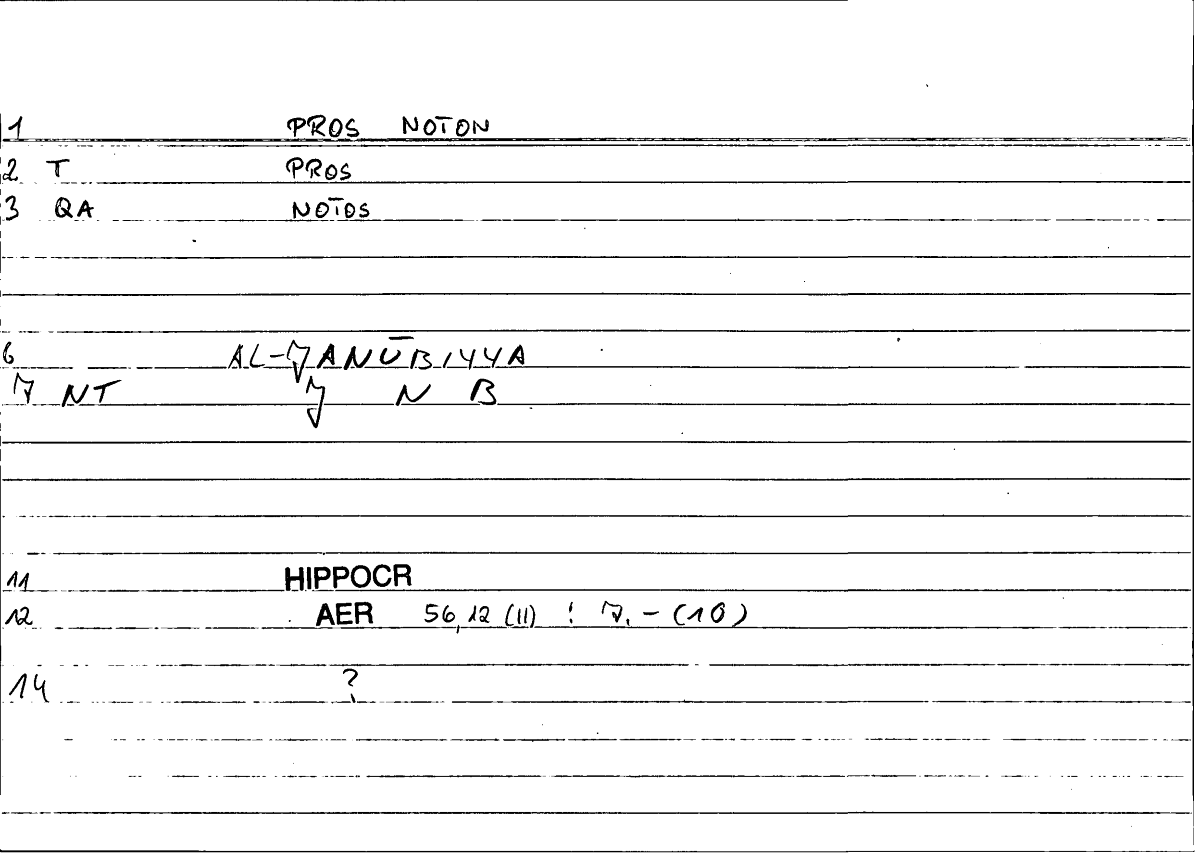 1 PROS NOTON
2 T PROS
3 QA NOTOS
6 AL-JANŪBIYYA
7 NT J N B
11 HIPPOCR
12 AER 56,12 (11) : 7. – (10)
14 ?